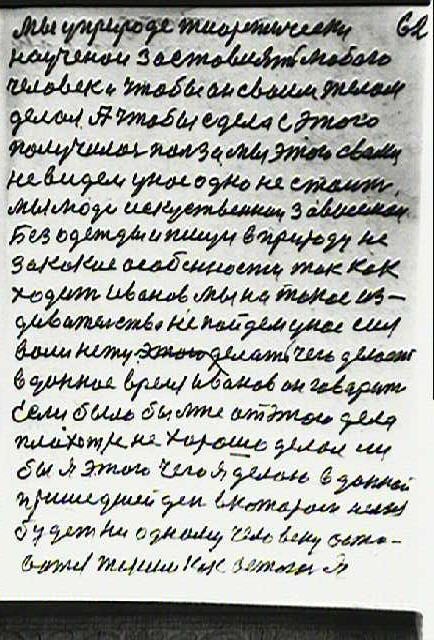 62
Мы у природе тиоретически
наученои заставият любого
человека чтобы он своим телом
делол. А чтобы с дела с этого
получилас полза мы этого свами
не видем у нос одно не стоит.
мы люди искуственнои зависемои
Без одежды и пищи в природу не
за какие особенности так как
ходит Иванов мы на такое из-
девателство не пойдем у нас сил
воли нету делать чего делоет
в данное время Иванов он гаварит
если было бы мне от этого дела
плохот не хорошо делол ли
бы я этого чего я делаю в данной
пришедшей ден в котором
будет ни одному человеку оста-
ватся таким как